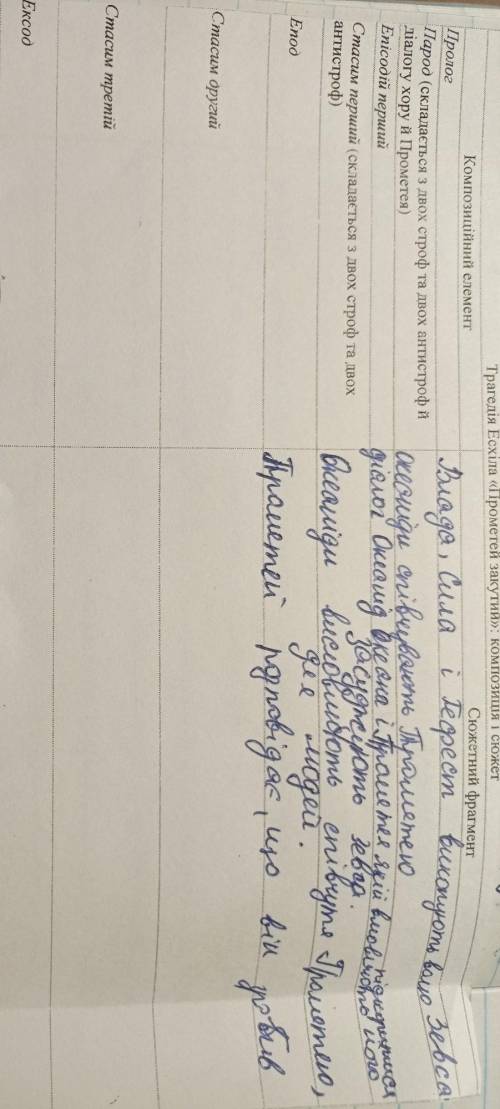 Трагедія Есхіла «Прометей закутий»: композиція і сюжет
Композиційний елемент
Сюжетний фрагмент
Пролог
Влада, Сила і Гефест виконують волю Зевса
Парод (складається з двох строф та двох антистроф й
діалогу хору й Прометея)
океаніди співчувають Прометею
Епісодій перший
діалог Океанід Океана і Прометея який вмовляють його
підкоритися
засуджують зевса.
Стасим перший (складається з двох строф та двох
антистроф)
Океаніди висловлюють співчутя Прометею,
для людей.
Епод
Прометей відповідає, що він зробив
Стасим другий
Стасим третій
Ексод